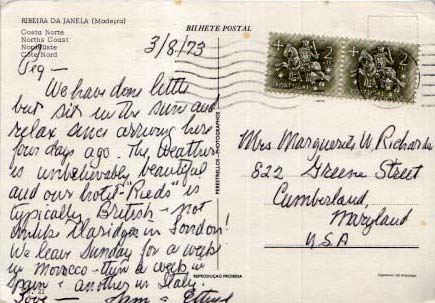 RIBEIRA DA JANELA (Madeira)
Costa Norte
Norths Coast
Nordküste
Côte Nord
BILHETE POSTAL
3/8/73
Peg —
We have done little
but sit in the sun and
relax since arriving here
four days ago. The weather
is unbelievably beautiful
and our hotel "Rieds" is
typically British - not
unlike Claridges in London!
We leave Sunday for a week
in Morocco - then a week in
Spain & another in Italy.
Love —
PERESTRELLOS - PHOTOGRAPHOS
REPRODUÇÃO PROIBIDA
Mrs Marguerite W. Richards
822 Greene Street
Cumberland,
Maryland
U.S.A